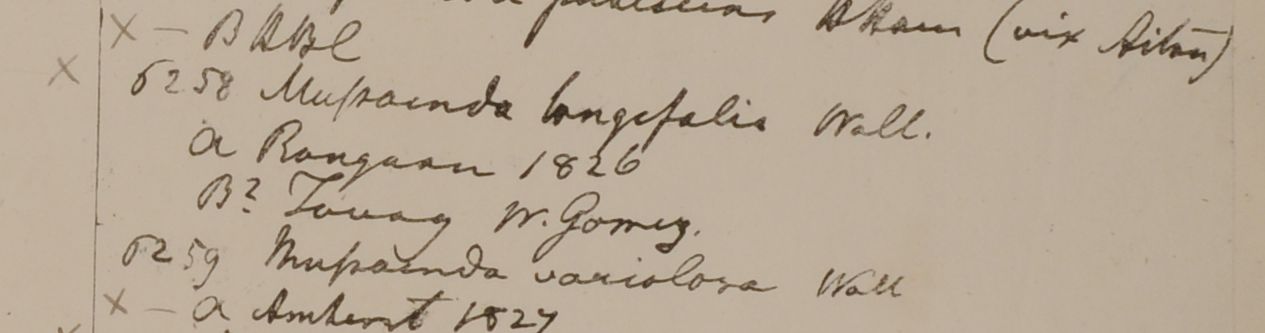 pubescens HHam (vix Aiton)
X — B HBC
X 6258 Mussaenda longifolia Wall.
A Rangoon 1826
B? Tavoy W. Gomez.
6259 Mussaenda variolosa Wall
X — A Amherst 1827